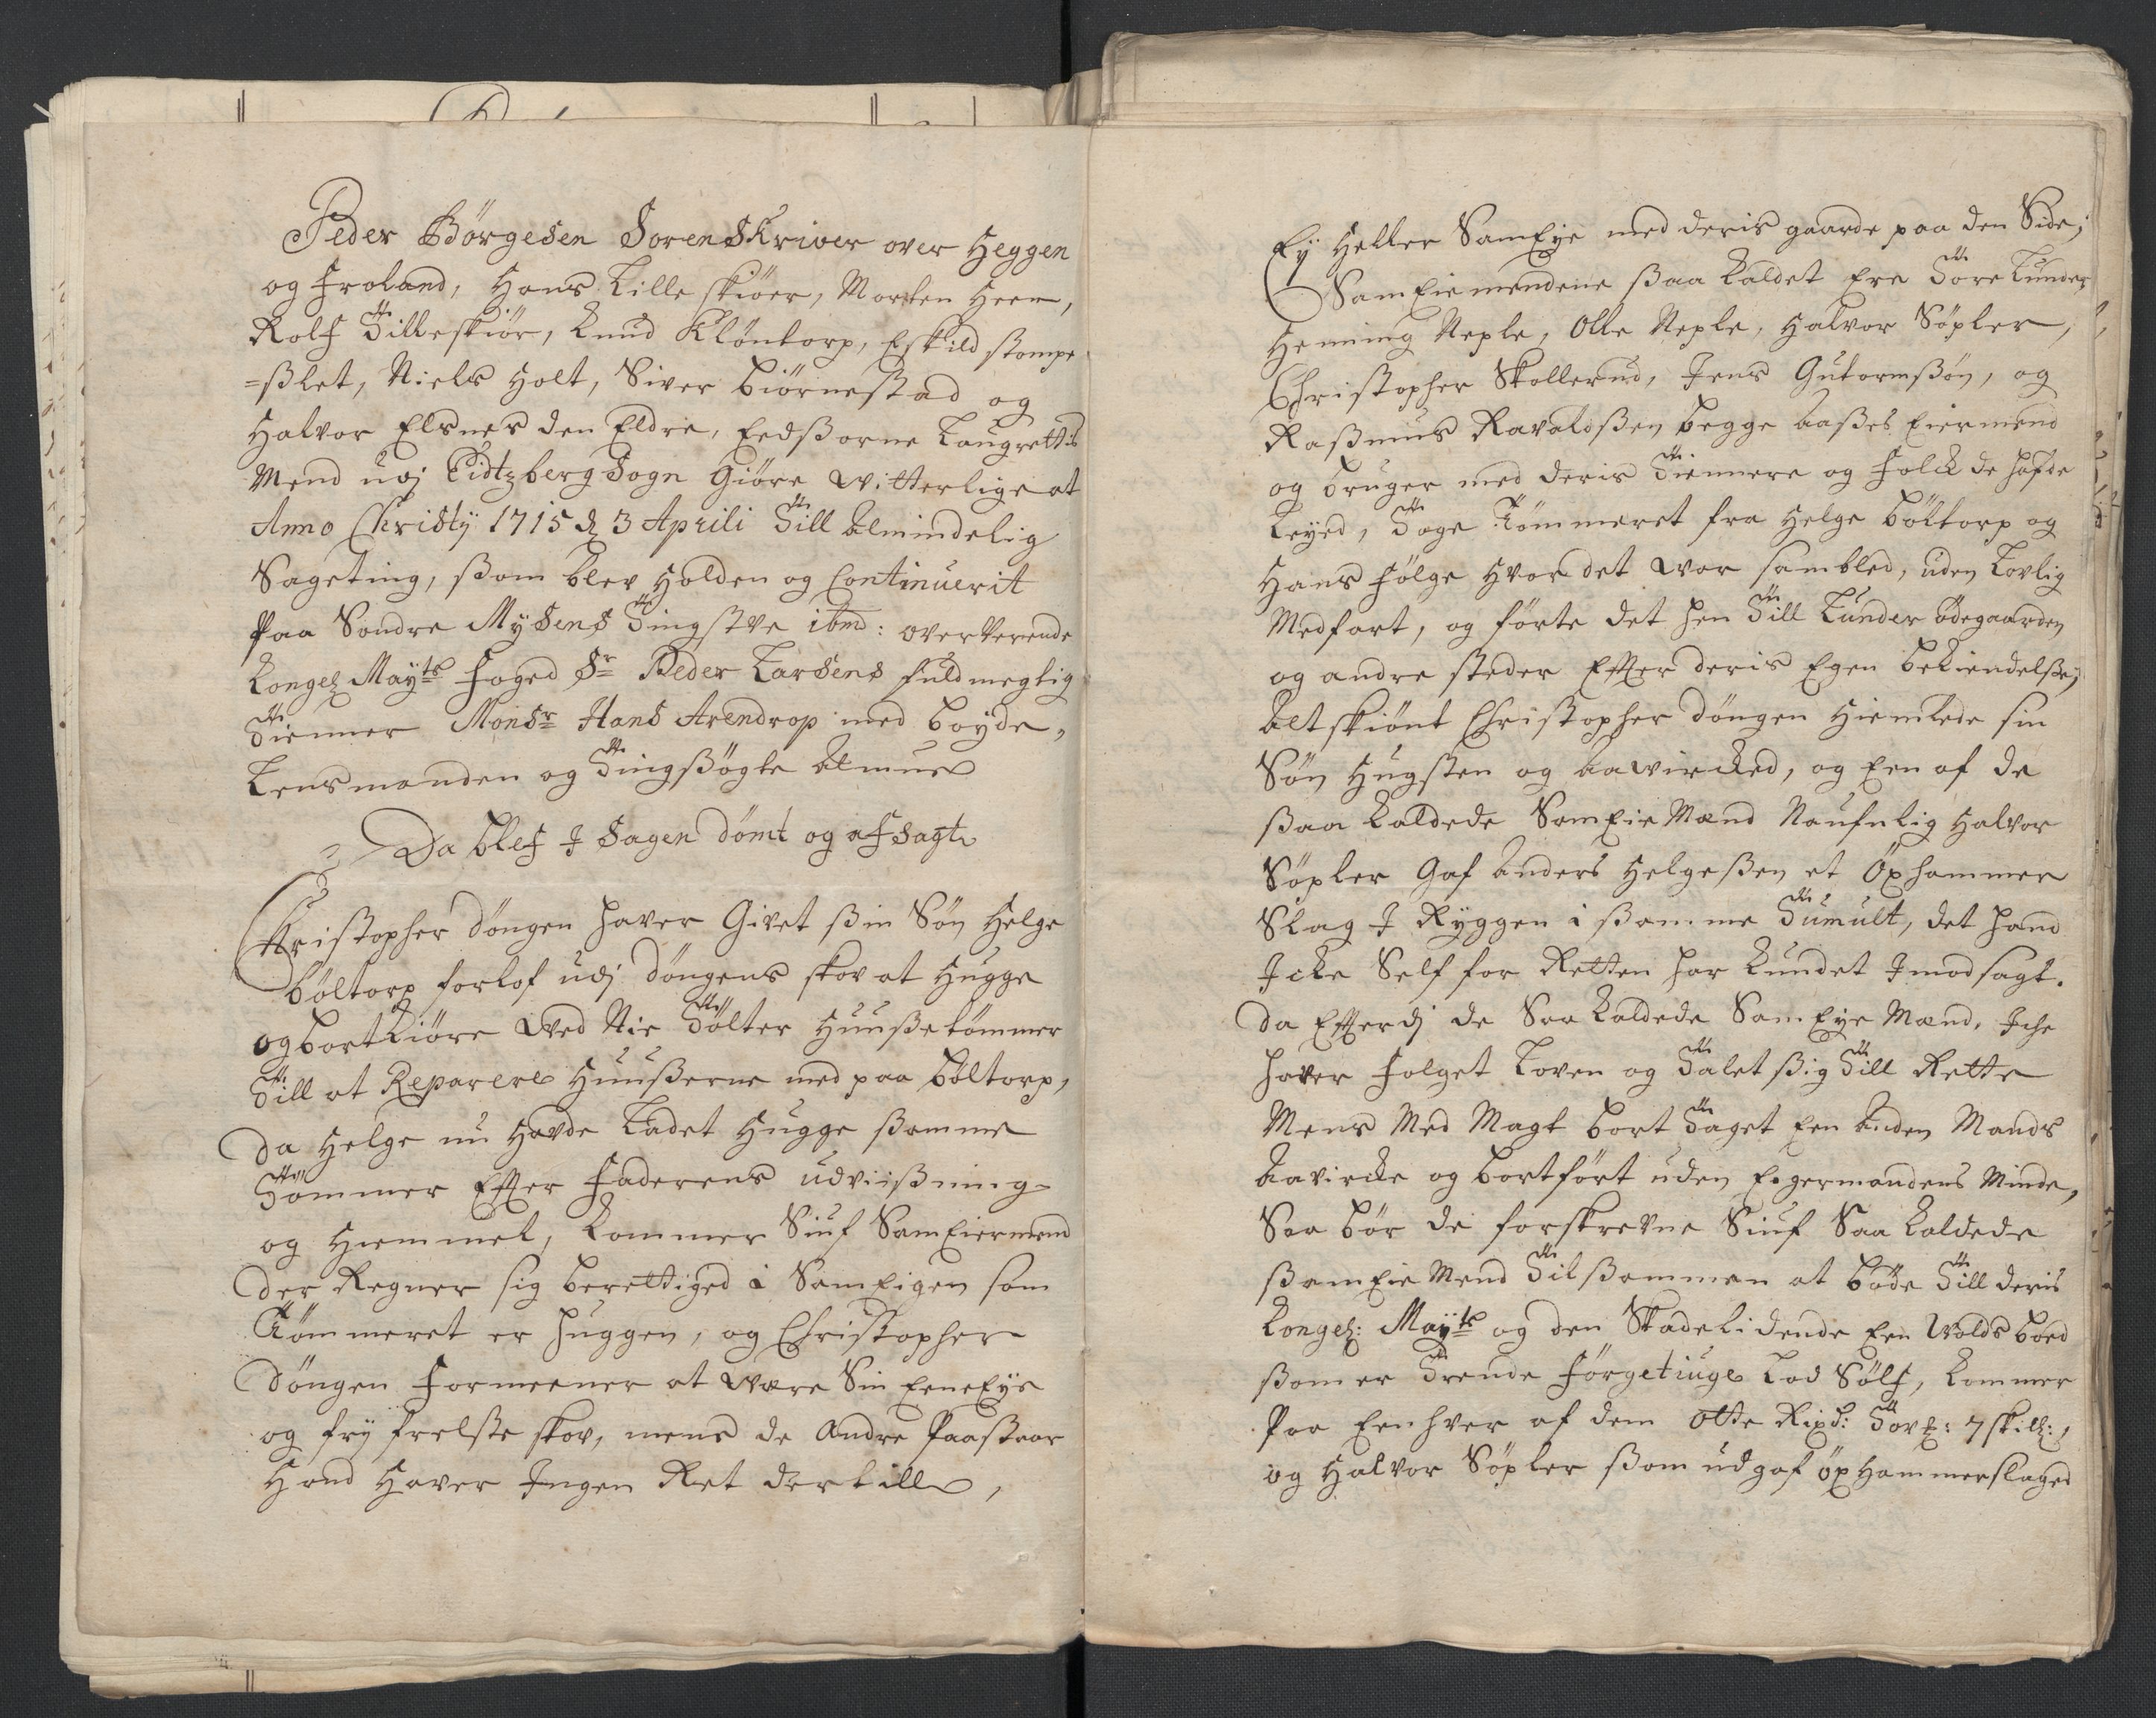 Peder Börgesen SorenSkriver over Heggen
og Froland, Hans Lille skiöer, Morten Heen,
Rolf Tilleskiör, Knud Klöntorp, Eskild stompe
=ßlet, Niels Holt, Siver Biörnestad og
Halvor Elsnes den Eldre, Eedßorne Laugrettis
Mend udj Eidtzberg Sogn Giöre witterlige at
Anno Christy 1715 d 3 Aprili Till Almindelig
Sageting, ßom blev Holden og Continuerit
Paa Sondre Mysens Tingstve ibmd: oververende
Kongel Mayts Foged Sr Peder Larsens fuldmegtig
Tienner Monsr Hans Arendrop med Boyde,
Lensmanden og Tingßögte Almue
Da blef I Sagen dömt og afsagt
Christopher Döngen haver Givet ßin Sön Helge
Böltorp forlof udj Döngens skov at Hugge
og bortkiöre wed Nie Tölter Huußetömmer
Till at Reparere Huußerne med paa Böltorp,
da Helge nu Havde Ladet Hugge ßamme
Tömmer Efter Faderens udviißning
og Hiemmel, kommer Siuf SamEiermend
der Regner sig berettiged i SamEigen som
Tömmeret er huggen, og Christopher
Döngen Formeener at være Sin EeneEye
og fry frelste skov, mens de Andre Paastaar
Hand Haver Ingen Ret dertill,
Ey Heller SamEye med deris gaarde paa den Side;
SamEiemendene ßaa kaldet Ere Tore Lunder
Henning Neple, Olle Neple, Halvor Söpler,
Christopher Skollerud, Jens Gutormßön, og
Raßmus Ravaldßen begge Aaßes Eiermend
og bruger med deris Tiennere og Folck de hafde
Leyed, Toge Tömmeret fra Helge Böltorp og
Hans Fölge Hvor det war samblet, uden Lovlig
Medfart, og förte det hen Till Lunder ödegaarden
og andre steder Efter deris Egen bekiendelße;
Alt skiönt Christopher Döngen Hiemlede sin
Sön Hugsten og Aawircked, og Een af de
ßaa kaldede SamEieMænd Naufnlig Halvor
Söpler Gaf Anders Helgeßen et Öxhammer
Slag I Ryggen i ßamme Tumult, det hand
Icke Self for Retten har kundet Imodsagt.
da Efterdj de Saa kaldede SamEyeMænd, Iche
haver Folget Loven og Talet ßig Till Rette
Mens Med Magt bort Taget Een Anden Mands
Aavircke og bortfört uden Eegermandens Minde,
Saa bör de forskrevne Siuf Saa kaldede
ßamEieMend Tilßammen at böde Till deris
Kongel: Mayts og den Skadelidende Een Voldsboed
ßom er Trende Förgetiuge Lod Sölf, kommer
Paa Eenhver af dem Otte Rixd: Tov: 7 skill:,
og Halvor Söpler ßom udgaf öxHammerslaged